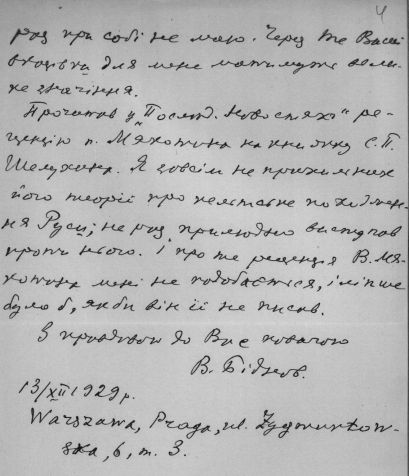 4
раз при собі не маю. Через те Ваші
вказівки для мене матимуть вели-
ке значіння.
Прочитав у "Послѣд. Новостяхъ" ре-
цензію п. Мякотина на книжку С. П.
Шелухина. Я зовсім не прихильник
його теорії про кельтське походжен-
ня Руси; не раз прилюдно виступав
проти нього. І проте рецензія В. Мя-
котина мені не подобається, і ліпше
було б, якби він її не писав.
З правдивою до Вас повагою
В. Біднов.
13/XII 1929 р.
Warszawa, Praga, ul. Zygmuntow-
ska, 6, m. 3.